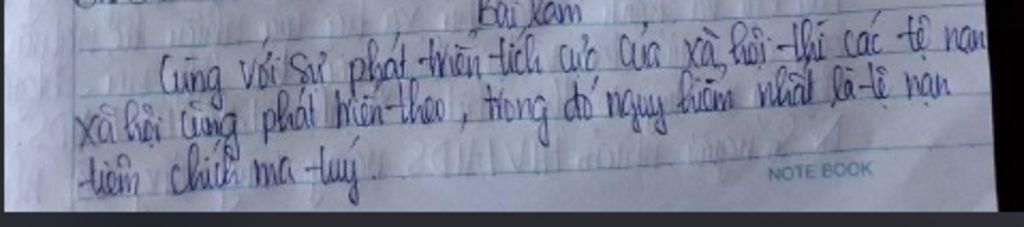 Bài làm
Cùng với sự phát triển tích cực của xã hội thì các tệ nạn
xã hội cũng phát triển theo, trong đó nguy hiểm nhất là tệ nạn
tiêm chích ma tuý.
NOTE BOOK